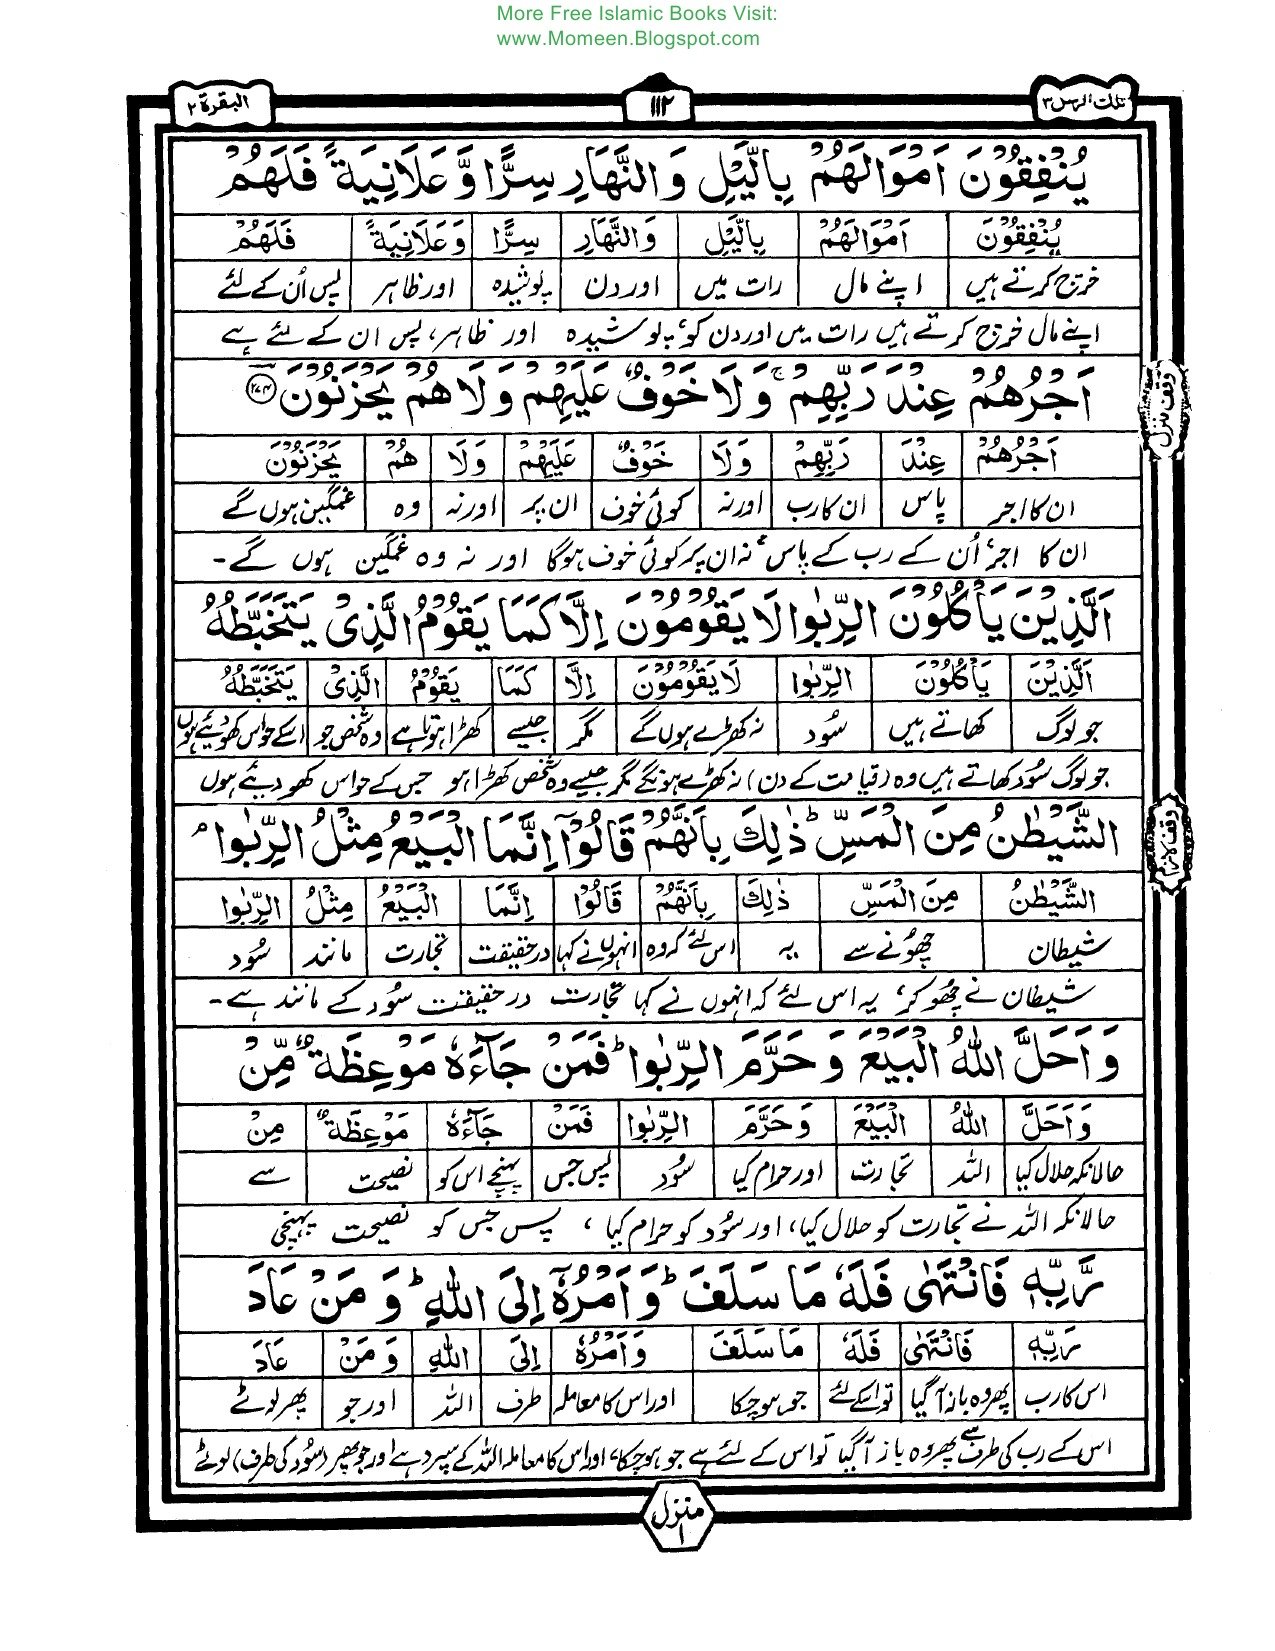 More Free Islamic Books Visit:
www.Momeen.Blogspot.com
تلك الرسل ٣
١١٢
البقرة ٢
يُنْفِقُوْنَ اَمْوَالَهُمْ بِالَّيْلِ وَالنَّهَارِ سِرًّا وَّعَلَانِيَةً فَلَهُمْ
يُنْفِقُوْنَ اَمْوَالَهُمْ بِالَّيْلِ وَالنَّهَارِ سِرًّا وَعَلَانِيَةً فَلَهُمْ
خرچ کرتے ہیں اپنے مال رات میں اور دن پوشیدہ اور ظاہر پس اُن کے لئے
اپنے مال خرچ کرتے ہیں رات میں اور دن کو، پوشیدہ اور ظاہر، پس ان کے لئے ہے
اَجْرُهُمْ عِنْدَ رَبِّهِمْ ۚ وَلَا خَوْفٌ عَلَيْهِمْ وَلَا هُمْ يَحْزَنُوْنَ ﴿٢٧٤﴾
وقف منزل
اَجْرُهُمْ عِنْدَ رَبِّهِمْ وَلَا خَوْفٌ عَلَيْهِمْ وَلَا هُمْ يَحْزَنُوْنَ
ان کا اجر پاس ان کا رب اور نہ کوئی خوف ان پر اور نہ وہ غمگین ہوں گے
ان کا اجر، اُن کے رب کے پاس، نہ ان پر کوئی خوف ہوگا اور نہ وہ غمگین ہوں گے۔
اَلَّذِيْنَ يَأْكُلُوْنَ الرِّبٰوا لَا يَقُوْمُوْنَ اِلَّا كَمَا يَقُوْمُ الَّذِىْ يَتَخَبَّطُهُ
اَلَّذِيْنَ يَأْكُلُوْنَ الرِّبٰوا لَا يَقُوْمُوْنَ اِلَّا كَمَا يَقُوْمُ الَّذِىْ يَتَخَبَّطُهُ
جو لوگ کھاتے ہیں سُود نہ کھڑے ہوں گے مگر جیسے کھڑا ہوتا ہے وہ شخص جو اسکے حواس کھو دیئے ہوں
جو لوگ سُود کھاتے ہیں وہ (قیامت کے دن) نہ کھڑے ہونگے مگر جیسے وہ شخص کھڑا ہو جس کے حواس کھو دیئے ہوں
الشَّيْطٰنُ مِنَ الْمَسِّ ؕ ذٰلِكَ بِاَنَّهُمْ قَالُوْٓا اِنَّمَا الْبَيْعُ مِثْلُ الرِّبٰوا ۘ
الشَّيْطٰنُ مِنَ الْمَسِّ ذٰلِكَ بِاَنَّهُمْ قَالُوْٓا اِنَّمَا الْبَيْعُ مِثْلُ الرِّبٰوا
شیطان چھُونے سے یہ اس لئے کہ وہ انہوں نے کہا درحقیقت تجارت مانند سُود
شیطان نے چھُو کر، یہ اس لئے کہ انہوں نے کہا تجارت درحقیقت سُود کے مانند ہے۔
وَاَحَلَّ اللّٰهُ الْبَيْعَ وَحَرَّمَ الرِّبٰوا ؕ فَمَنْ جَآءَهٗ مَوْعِظَةٌ مِّنْ
وَاَحَلَّ اللّٰهُ الْبَيْعَ وَحَرَّمَ الرِّبٰوا فَمَنْ جَآءَهٗ مَوْعِظَةٌ مِنْ
حالانکہ حلال کیا اللہ تجارت اور حرام کیا سُود پس جس پہنچے اس کو نصیحت سے
حالانکہ اللہ نے تجارت کو حلال کیا، اور سُود کو حرام کیا، پس جس کو نصیحت پہنچی
رَّبِّهٖ فَانْتَهٰى فَلَهٗ مَا سَلَفَ ؕ وَاَمْرُهٗٓ اِلَى اللّٰهِ ؕ وَمَنْ عَادَ
رَّبِّهٖ فَانْتَهٰى فَلَهٗ مَا سَلَفَ وَاَمْرُهٗ اِلَى اللّٰهِ وَمَنْ عَادَ
اس کا رب پھر وہ باز آگیا تو اسکے لئے جو ہوچکا اور اس کا معاملہ طرف اللہ اور جو پھر لوٹے
اس کے رب کی طرف سے پھر وہ باز آگیا تو اس کے لئے ہے جو ہوچکا، اور اس کا معاملہ اللہ کے سپرد ہے اور جو پھر (سُود کی طرف) لوٹے
منزل ١